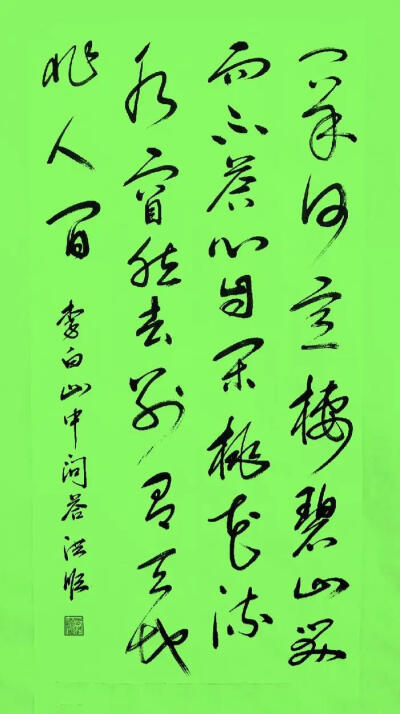 问余何意棲碧山笑
而不答心自闲桃花流
水窅然去别有天地
非人间
李白山中问答洪